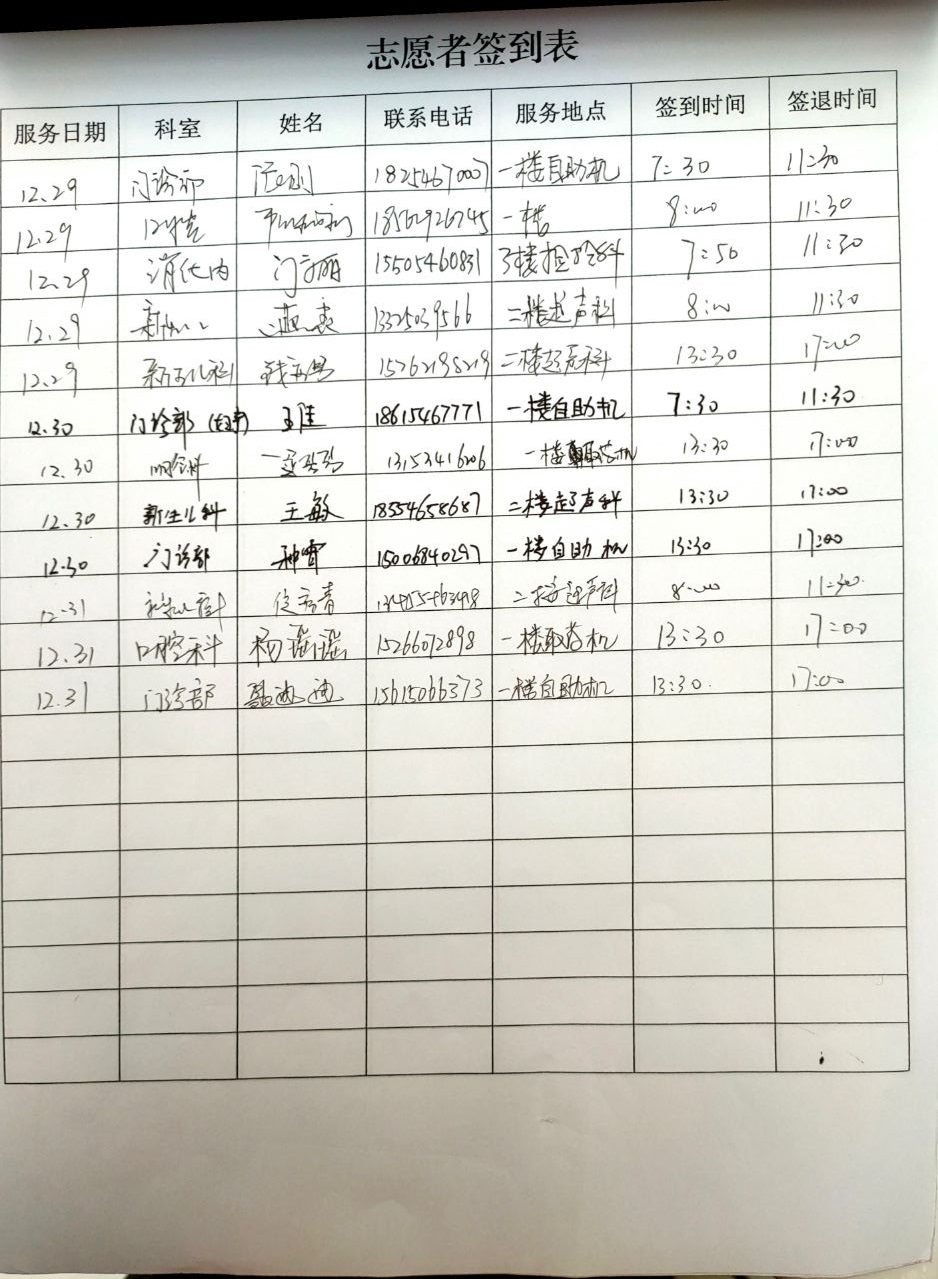 志愿者签到表
服务日期 科室 姓名 联系电话 服务地点 签到时间 签退时间
12.29 门诊部 18254670007 一楼自助机 7:30 11:30
12.29 口腔 18561926745 一楼 8:00 11:30
12.29 消化内 15505460831 3楼检验科 7:50 11:30
12.29 二楼超声科 8:00 11:30
12.29 新生儿科 15262198219 二楼超声科 13:30 17:00
12.30 门诊部 王佳 18615467771 一楼自助机 7:30 11:30
12.30 一楼取药机 13:30 17:00
12.30 新生儿科 王敏 18554658687 二楼超声科 13:30 17:00
12.30 门诊部 15006840297 一楼自助机 13:30 17:00
12.31 二楼超声科 8:00 11:30
12.31 口腔科 杨谣谣 15266072898 一楼取药机 13:30 17:00
12.31 门诊部 15615066373 一楼自助机 13:30. 17:00